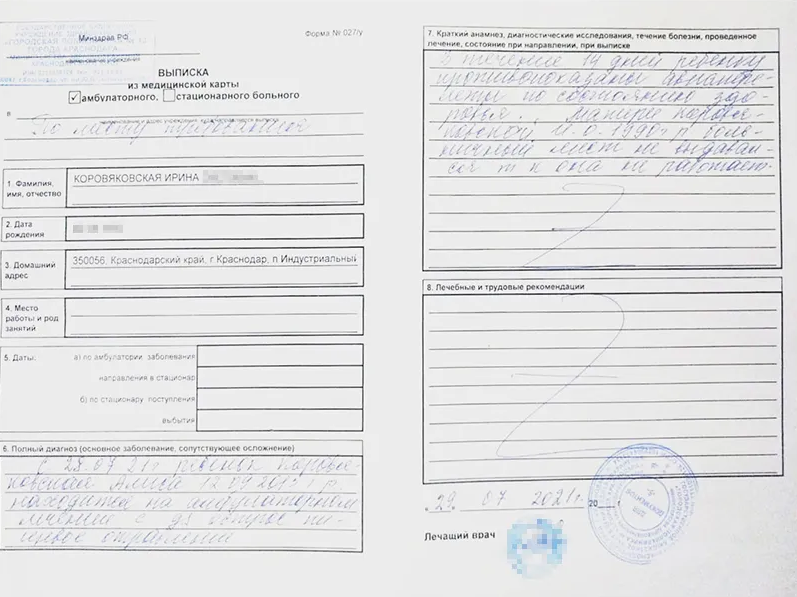 Минздрав РФ
наименование учреждения
Форма № 027/у
ВЫПИСКА
из медицинской карты
амбулаторного, стационарного больного
в
По месту требования
1. Фамилия,
имя, отчество
КОРОВЯКОВСКАЯ ИРИНА
2. Дата
рождения
3. Домашний
адрес
350056, Краснодарский край, г Краснодар, п Индустриальный
4. Место
работы и род
занятий
5. Даты:
а) по амбулатории заболевания
направления в стационар
б) по стационару поступления
выбытия
6. Полный диагноз (основное заболевание, сопутствующее осложнение)
ребенок Коровя-
ковская Алиса
находится на амбулаторном
лечении с ds острое пи-
щевое отравление
7. Краткий анамнез, диагностические исследования, течение болезни, проведенное
лечение, состояние при направлении, при выписке
В течение 14 дней ребенку
противопоказаны авиапере-
леты по состоянию здо-
ровья. Матери Коровя-
ковской И.О. 1990 г р боль-
ничный лист не выдавал-
ся т к она не работает
8. Лечебные и трудовые рекомендации
29 07 2021г. 20
Лечащий врач